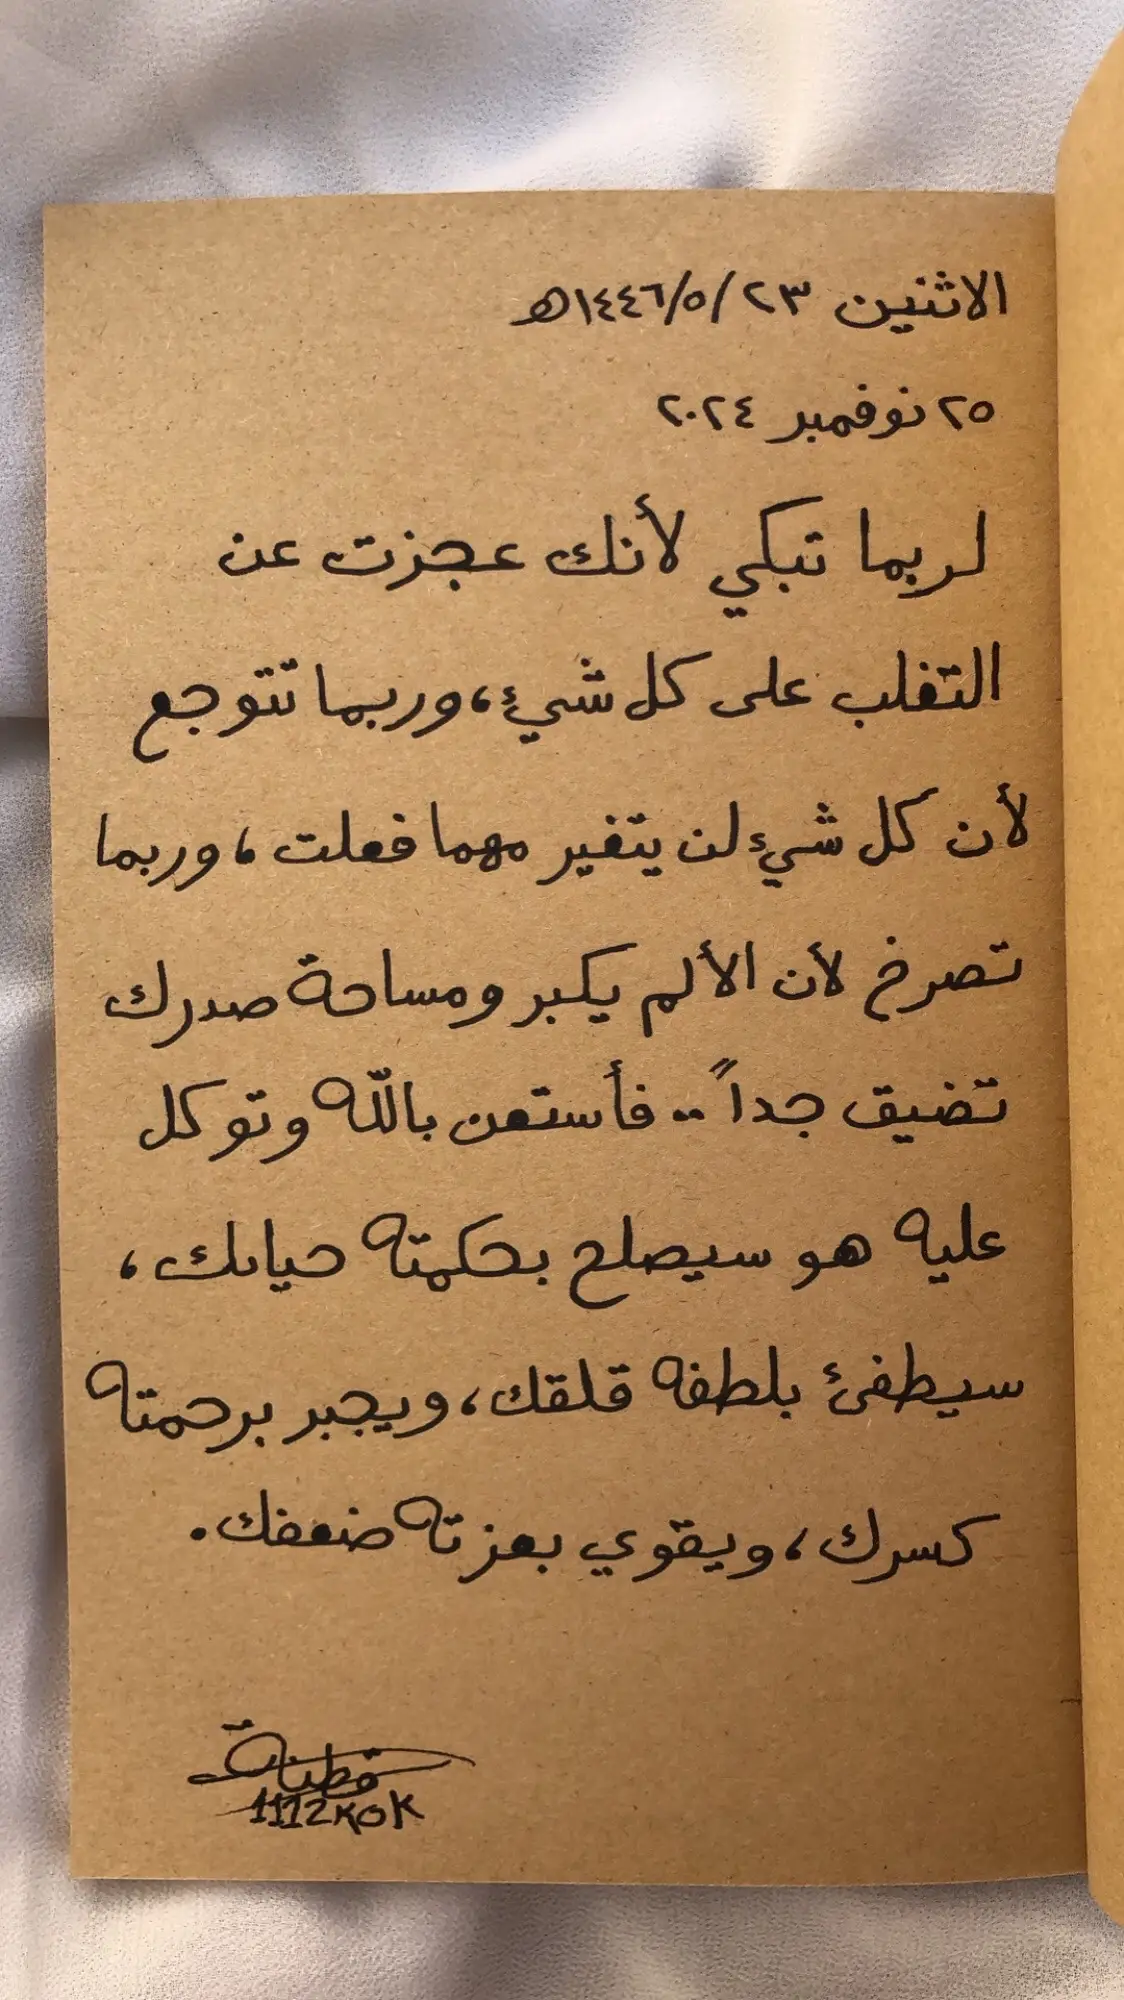 الاثنين ٢٣/٥/١٤٤٦هـ
٢٥ نوفمبر ٢٠٢٤
لربما تبكي لأنك عجزت عن
التغلب على كل شيء، وربما تتوجع
لأن كل شيء لن يتغير مهما فعلت، وربما
تصرخ لأن الألم يكبر ومساحة صدرك
تضيق جداً .. فأستعن بالله وتوكل
عليه هو سيصلح بحكمته حياتك،
سيطفئ بلطفه قلقك، ويجبر برحمته
كسرك، ويقوي بعزته ضعفك.
1112KOK